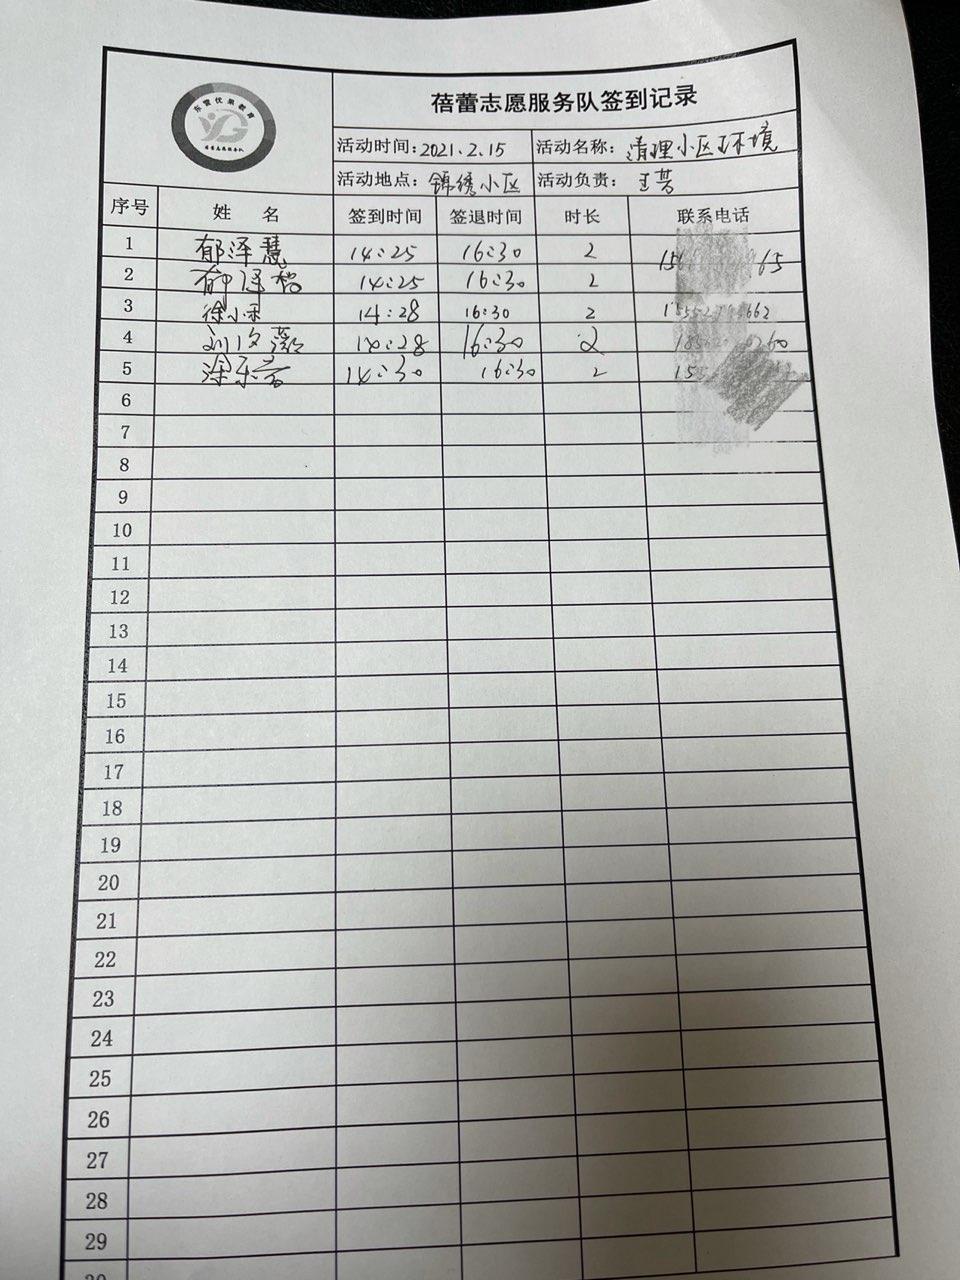 东营优果教育
YG
蓓蕾志愿服务队
蓓蕾志愿服务队签到记录
活动时间：2021.2.15 活动名称：清理小区环境
活动地点：锦绣小区 活动负责：王芳
序号 姓 名 签到时间 签退时间 时长 联系电话
1 郁泽慧 14:25 16:30 2
2 郁泽 14:25 16:30 2
3 徐小禾 14:28 16:30 2
4 刘文 14:28 16:30 2
5 涂乐 14:30 16:30 2
6
7
8
9
10
11
12
13
14
15
16
17
18
19
20
21
22
23
24
25
26
27
28
29
30